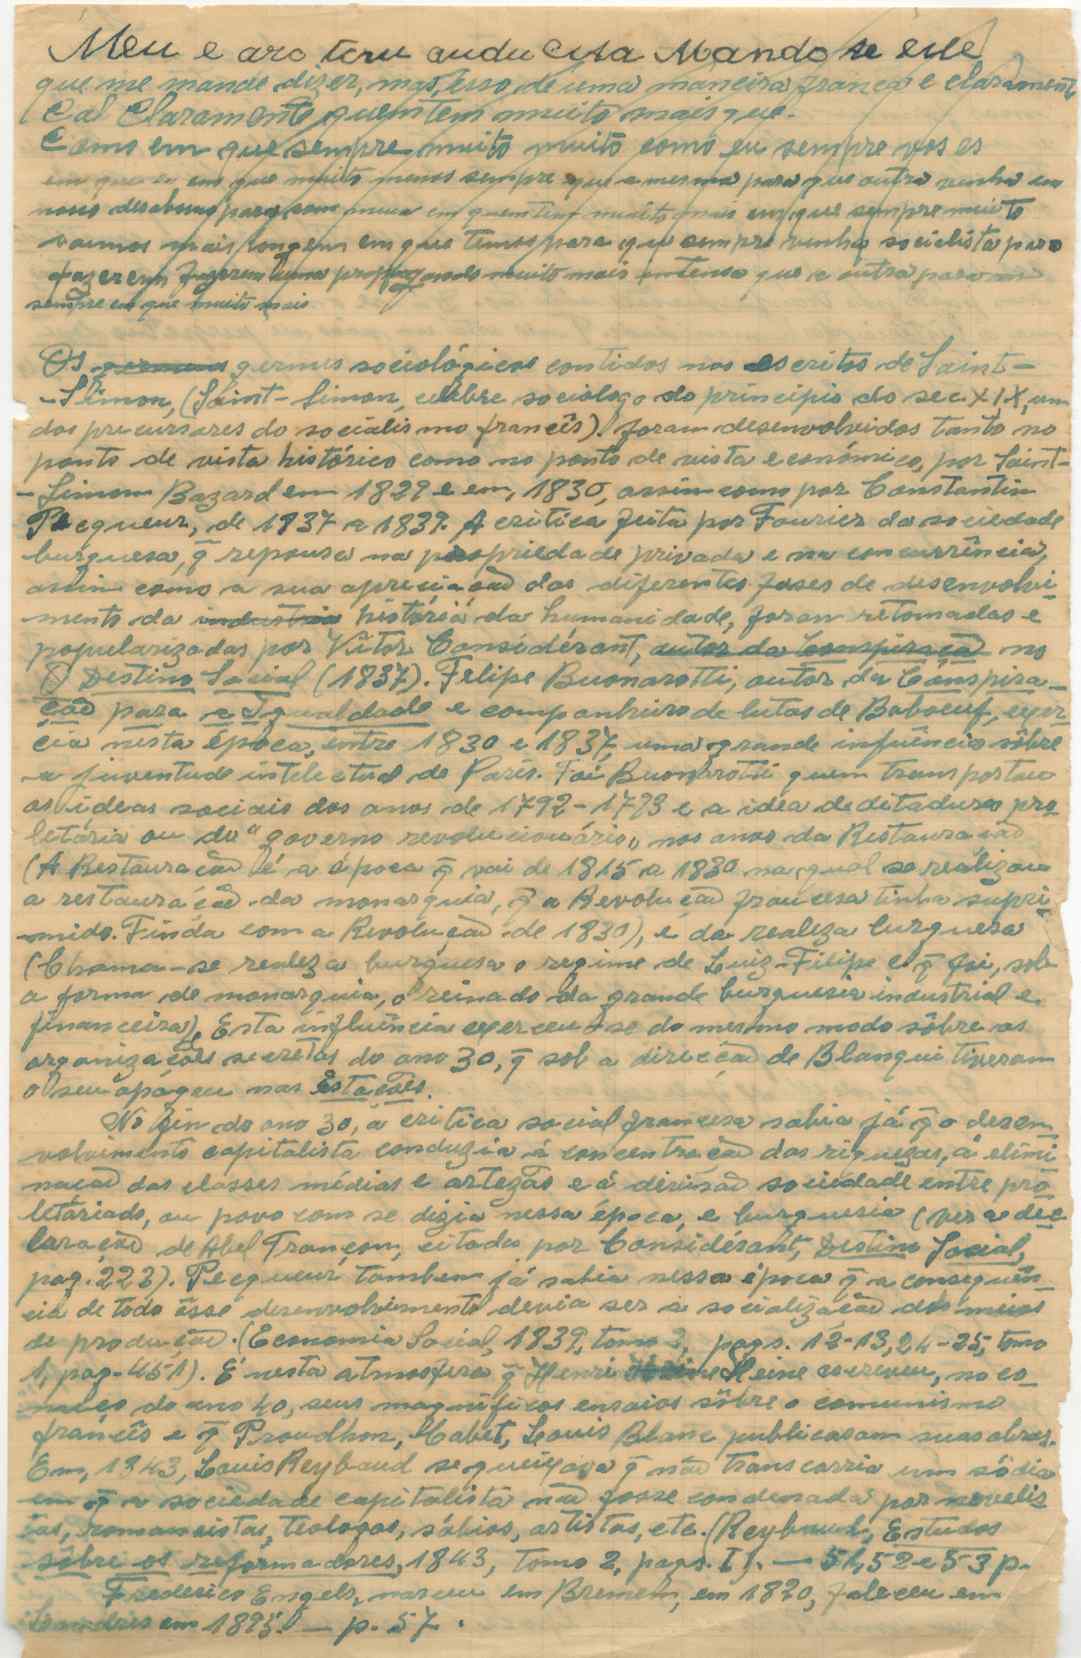 Meu e aro teru Mando se este
que me mande dizer, mas, isso de uma maneira franca e claramente
Cal Claramente quem tem muito mais que.
Como em que sempre muito muito como eu sempre vos es
em que e em que muito menos sempre que a mesma para que outra venha em
nosso para com em quem tem muito mais em que sempre muito
vamos mais longem em que temos para que sempre venha socialista para
fazerem fazerem uma muito mais intensa que e outra para
sempre em que muito mais

Os germens germes sociológicos contidos nos escritos de Saint-
-Simon, (Saint-Simon, celebre sociologo do principio do sec. XIX, um
dos precursores do socialismo francês) foram desenvolvidos tanto no
ponto de vista histórico como no ponto de vista económico, por Saint-
-Simon Bazard em 1829 e em, 1830, assim como por Constantin
Pecqueur, de 1837 a 1839. A critica feita por Fourier da sociedade
burguesa, q̃ repousa na propriedade privada e na concurrência,
assim como a sua apreciação das diferentes fases de desenvolvi-
mento da industria história da humanidade, foram retomadas e
popularizadas por Vitor Considérant, autor da Conspiração no
O Destino Social (1837). Felipe Buonarotti, autor da Conspira-
ção para a Igualdade e companheiro de lutas de Baboeuf, exer-
cia nesta época, entre 1830 e 1837, uma grande influência sôbre
a juventude intelectual de Paris. Foi Buonarotti quem transportou
as ideas sociais dos anos de 1792-1793 e a idea de ditadura pro-
letária ou do "governo revolucionário" nos anos da Restauração
(A Restauração é a época q̃ vai de 1815 a 1830 na qual se realizou
a restauração da monarquia, q̃ a Revolução francesa tinha supri-
mido. Finda com a Revolução de 1830), e da realeza burguesa
(Chama-se realeza burguesa o regime de Luiz-Filipe e q̃ foi, sob
a forma de monarquia, o reinado da grande burguesia industrial e
financeira). Esta influência exerceu-se do mesmo modo sôbre as
organizações secretas do ano 30, q̃ sob a direcção de Blanqui tiveram
o seu apogeu nas Estações.
No fin do ano 30, a critica social francesa sabia já q̃ o desen-
volvimento capitalista conduzia á concentração das riquezas, á elimi-
nação das classes médias e artezãs e á divisão sociedade entre pro-
letáriado, ou povo com se dizia nessa época, e burguesia (ver a dec-
laração de Abel Trançon, citada por Considérant, Destino Social,
pag. 222). Pecqueur tambem já sabia nessa época q̃ a consequên-
cia de todo êsse desenvolvimento devia ser a socialização dos meios
de produção. (Economia Social, 1839, tomo 3, pags. 12-13, 24-25, tomo
1, pag. 451). É nesta atmosfera q̃ Henri Heine escreveu, no co-
meço do ano 40, seus magnificos ensaios sôbre o comunismo
francês e q̃ Proudhon, Cabet, Louis Blanc publicaram suas obras.
Em, 1843, Louis Reybaud se queixava q̃ não transcorria um só dia
em q̃ a sociedade capitalista não fosse condenada por novelis-
tas, romancistas, teologos, sábios, artistas, etc. (Reybaud, Estudos
sôbre os reformadores, 1843, tomo 2, pags. I). — 51, 52 e 53 p.
Frederico Engels, nasceu em Bremen, em 1820, faleceu em
Londres em 1895. — p. 57.